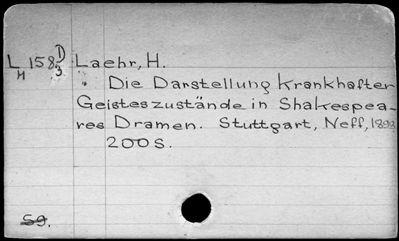 L 158 D Laehr, H.
H 3
Die Darstellung Krankhafter
Geisteszustände in Shakespea-
res Dramen. Stuttgart, Neff, 1898
200 S.